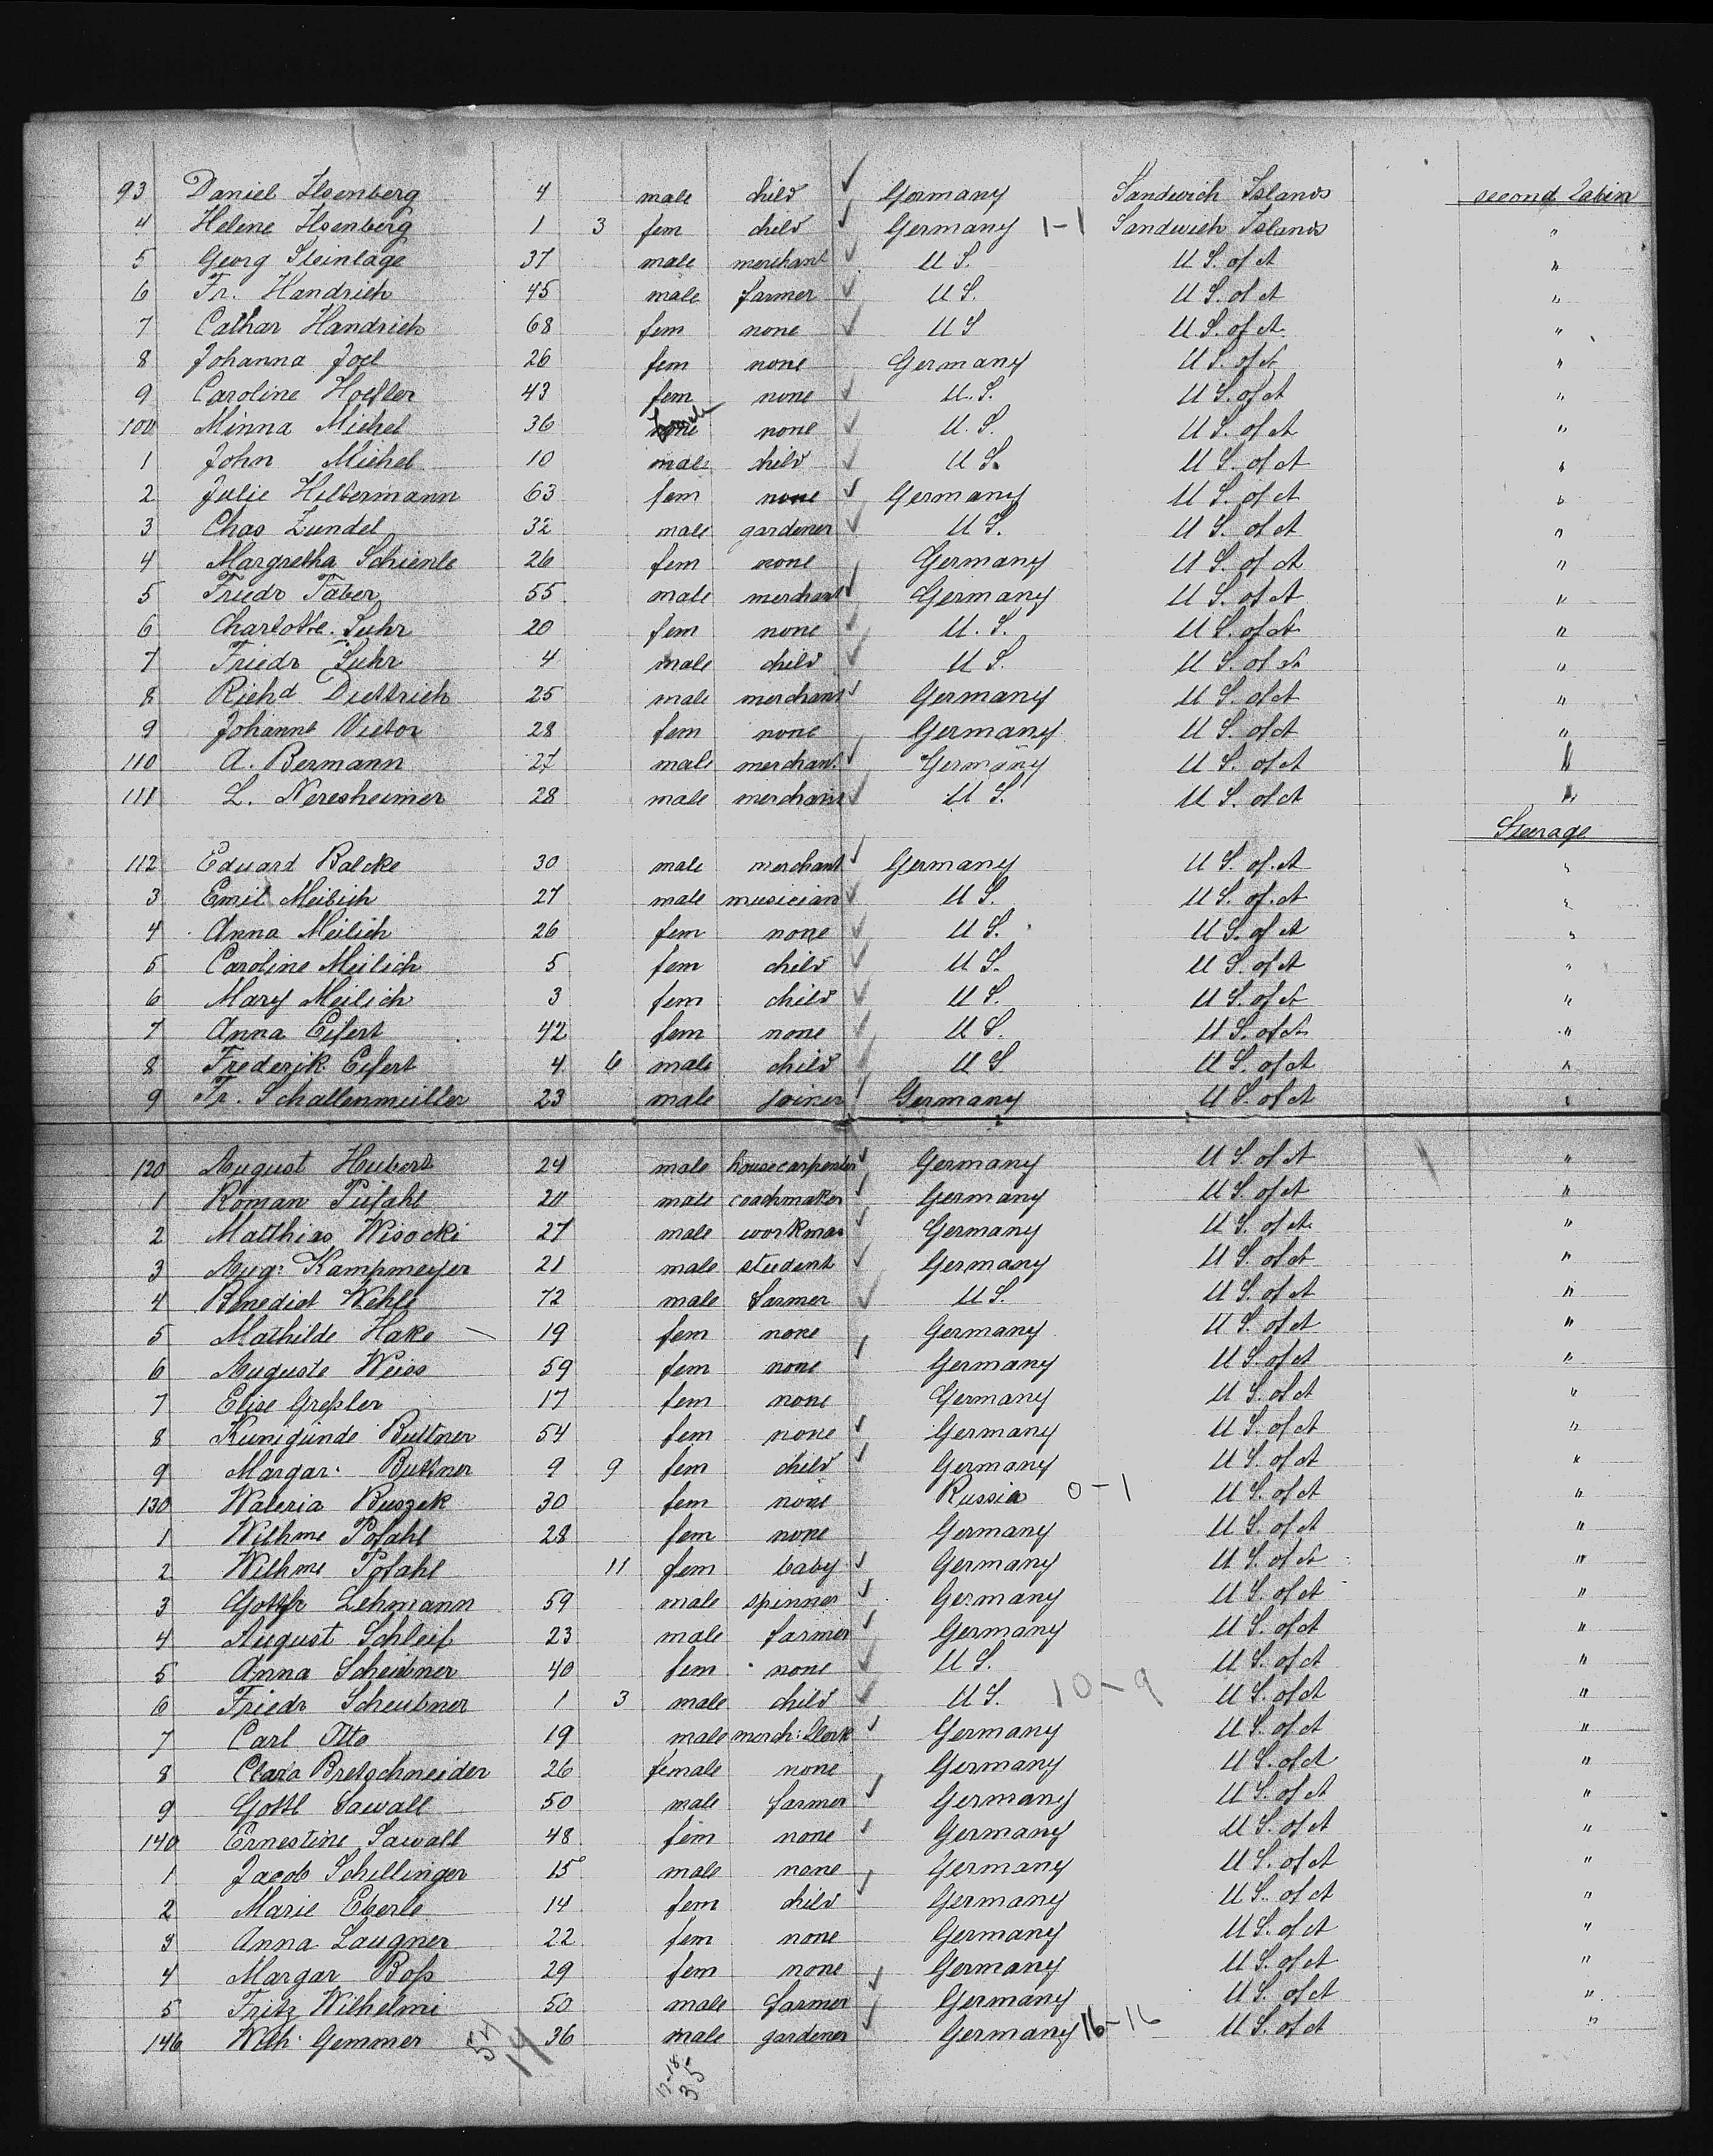 93 Daniel Isenberg 4 male child Germany Sandwich Islands second Cabin
4 Helene Isenberg 1 3 fem child Germany 1-1 Sandwich Islands "
5 Georg Steinlage 37 male merchant U S. U S. of A "
6 Fr. Handrich 45 male farmer U S. U S. of A "
7 Cathar Handrich 68 fem none U S U S. of A. "
8 Johanna Joel 26 fem none Germany U S. of A "
9 Caroline Hoefler 43 fem none U. S. U S. of A "
100 Minna Michel 36 female none U. S. U S. of A "
1 John Michel 10 male child U S. U S. of A "
2 Julie Hilbermann 63 fem none Germany U S. of A "
3 Chas Zundel 32 male gardener U S. U S. of A "
4 Margretha Schienle 26 fem none Germany U S. of A "
5 Friedr Faber 55 male merchant Germany U S. of A "
6 Charlotte Suhr 20 fem none U. S. U S. of A "
7 Friedr Suhr 4 male child U S. U S. of A "
8 Richd Diettrich 25 male merchant Germany U S. of A "
9 Johanne Victor 28 fem none Germany U S. of A "
110 A. Bermann 27 male merchant Germany U S. of A "
111 L. Neresheimer 28 male merchant U S. U S. of A "
Steerage
112 Eduard Balcke 30 male merchant Germany U S. of A "
3 Emil Meilich 27 male musician U S. U S. of A "
4 Anna Meilich 26 fem none U S. U S. of A "
5 Caroline Meilich 5 fem child U S. U S. of A "
6 Mary Meilich 3 fem child U S. U S. of A "
7 Anna Eifert 42 fem none U S. U S. of A "
8 Frederik Eifert 4 6 male child U S U S. of A "
9 Fr. Schallenmüller 23 male joiner Germany U S. of A "
120 August Hubert 24 male housecarpenter Germany U S. of A "
1 Roman Pufahl 20 male coachmaker Germany U S. of A "
2 Matthias Wisocki 27 male workman Germany U S. of A "
3 Aug: Kampmeyer 21 male student Germany U S. of A "
4 Benedict Wehle 72 male farmer U S. U S. of A "
5 Mathilde Hake 19 fem none Germany U S. of A "
6 Auguste Weiss 59 fem none Germany U S. of A "
7 Elise Greßler 17 fem none Germany U S. of A "
8 Kunigunde Buttner 54 fem none Germany U S. of A "
9 Margar: Buttner 9 9 fem child Germany U S. of A "
130 Waleria Buszek 30 fem none Russia 0-1 U S. of A "
1 Wilhme Pofahl 28 fem none Germany U S. of A "
2 Wilhme Pofahl 11 fem baby Germany U S. of A "
3 Gottfr Lehmann 59 male spinner Germany U S. of A "
4 August Schleif 23 male farmer Germany U S. of A "
5 Anna Scheubner 40 fem none U S. U S. of A "
6 Friedr Scheubner 1 3 male child U S. 10-9 U S. of A "
7 Carl Otto 19 male merch: Clerk Germany U S. of A "
8 Clara Bretschneider 26 female none Germany U S. of A "
9 Gottl Sawall 50 male farmer Germany U S. of A "
140 Ernestine Sawall 48 fem none Germany U S. of A "
1 Jacob Schillinger 15 male none Germany U S. of A "
2 Marie Eberle 14 fem child Germany U S. of A "
3 Anna Laugner 22 fem none Germany U S. of A "
4 Margar Boß 29 fem none Germany U S. of A "
5 Fritz Wilhelmi 50 male farmer Germany U S. of A "
146 Wilh: Gemmer 36 male gardener Germany 16-16 U S. of A "
54
19
17-18
35